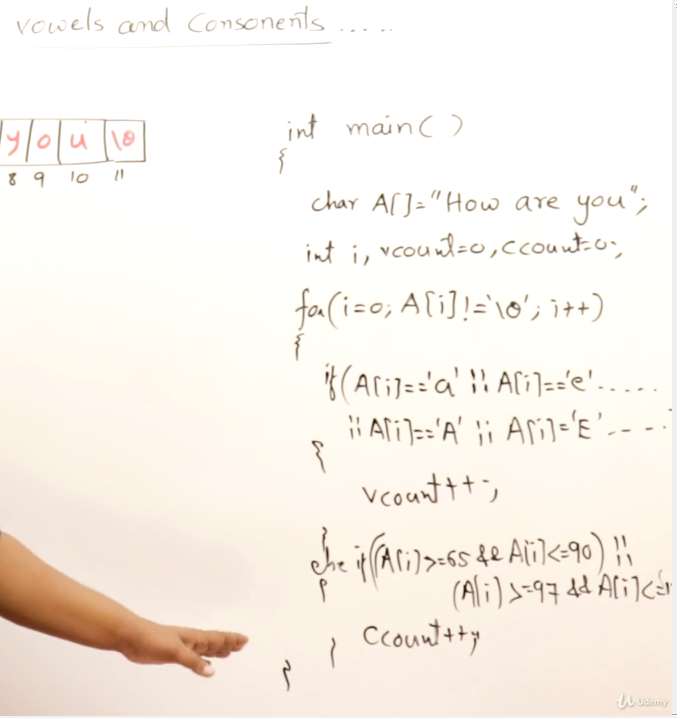 vowels and Consonents .....
y o u \0
8 9 10 11
int main( )
{
char A[]="How are you";
int i, vcount=0, ccount=0;
for(i=0; A[i]!='\0'; i++)
{
if(A[i]=='a' || A[i]=='e'.....
|| A[i]=='A' || A[i]='E'.....
{
vcount++;
}
else if((A[i]>=65 && A[i]<=90) ||
(A[i]>=97 && A[i]<=
{
ccount++;
}
}
Udemy